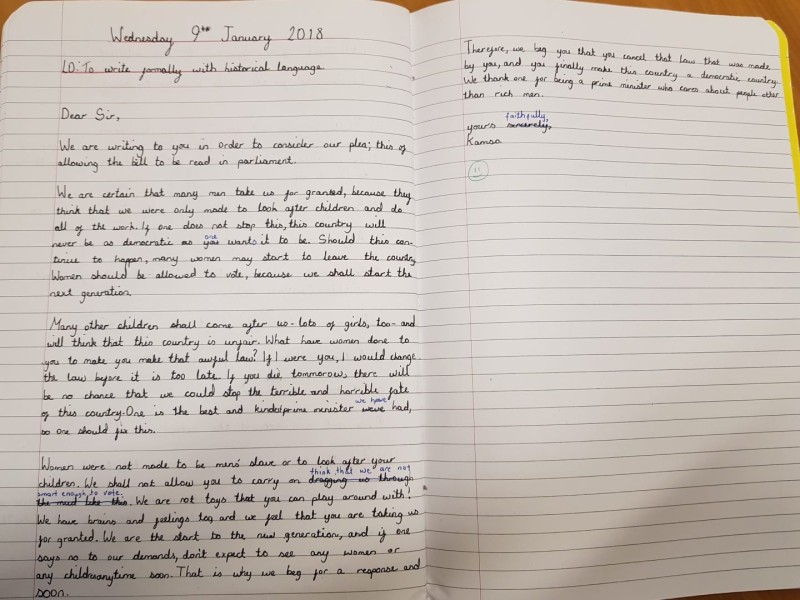 Wednesday 9th January 2018
LO: To write formally with historical language
Dear Sir,
We are writing to you in order to consider our plea; this of
allowing the bill to be read in parliament.
We are certain that many men take us for granted, because they
think that we were only made to look after children and do
all of the work. If one does not stop this, this country will
never be as democratic as you one wants it to be. Should this con-
tinue to happen, many women may start to leave the country.
Women should be allowed to vote, because we shall start the
next generation.
Many other children shall come after us- lots of girls, too- and
will think that this country is unfair. What have women done to
you to make you make that awful law? If I were you, I would change
the law before it is too late. If you die tommorow, there will
be no chance that we could stop the terrible and horrible fate
of this country. One is the best and kindest prime minister we have weve had,
so one should fix this.
Women were not made to be mens' slave or to look after your
children. We shall not allow you to carry on think that we are not dragging us through
smart enough to vote. the mud like this. We are not toys that you can play around with!
We have brains and feelings too and we feel that you are taking us
for granted. We are the start to the new generation, and if one
says no to our demands, don't expect to see any women or
any children anytime soon. That is why we beg for a response and
soon.
Therefore, we beg you that you cancel that law that was made
by you, and you finally make this country a democratic country.
We thank one for being a prime minister who cares about people other
than rich men.
faithfully,
yours sincerely,
Kamsa